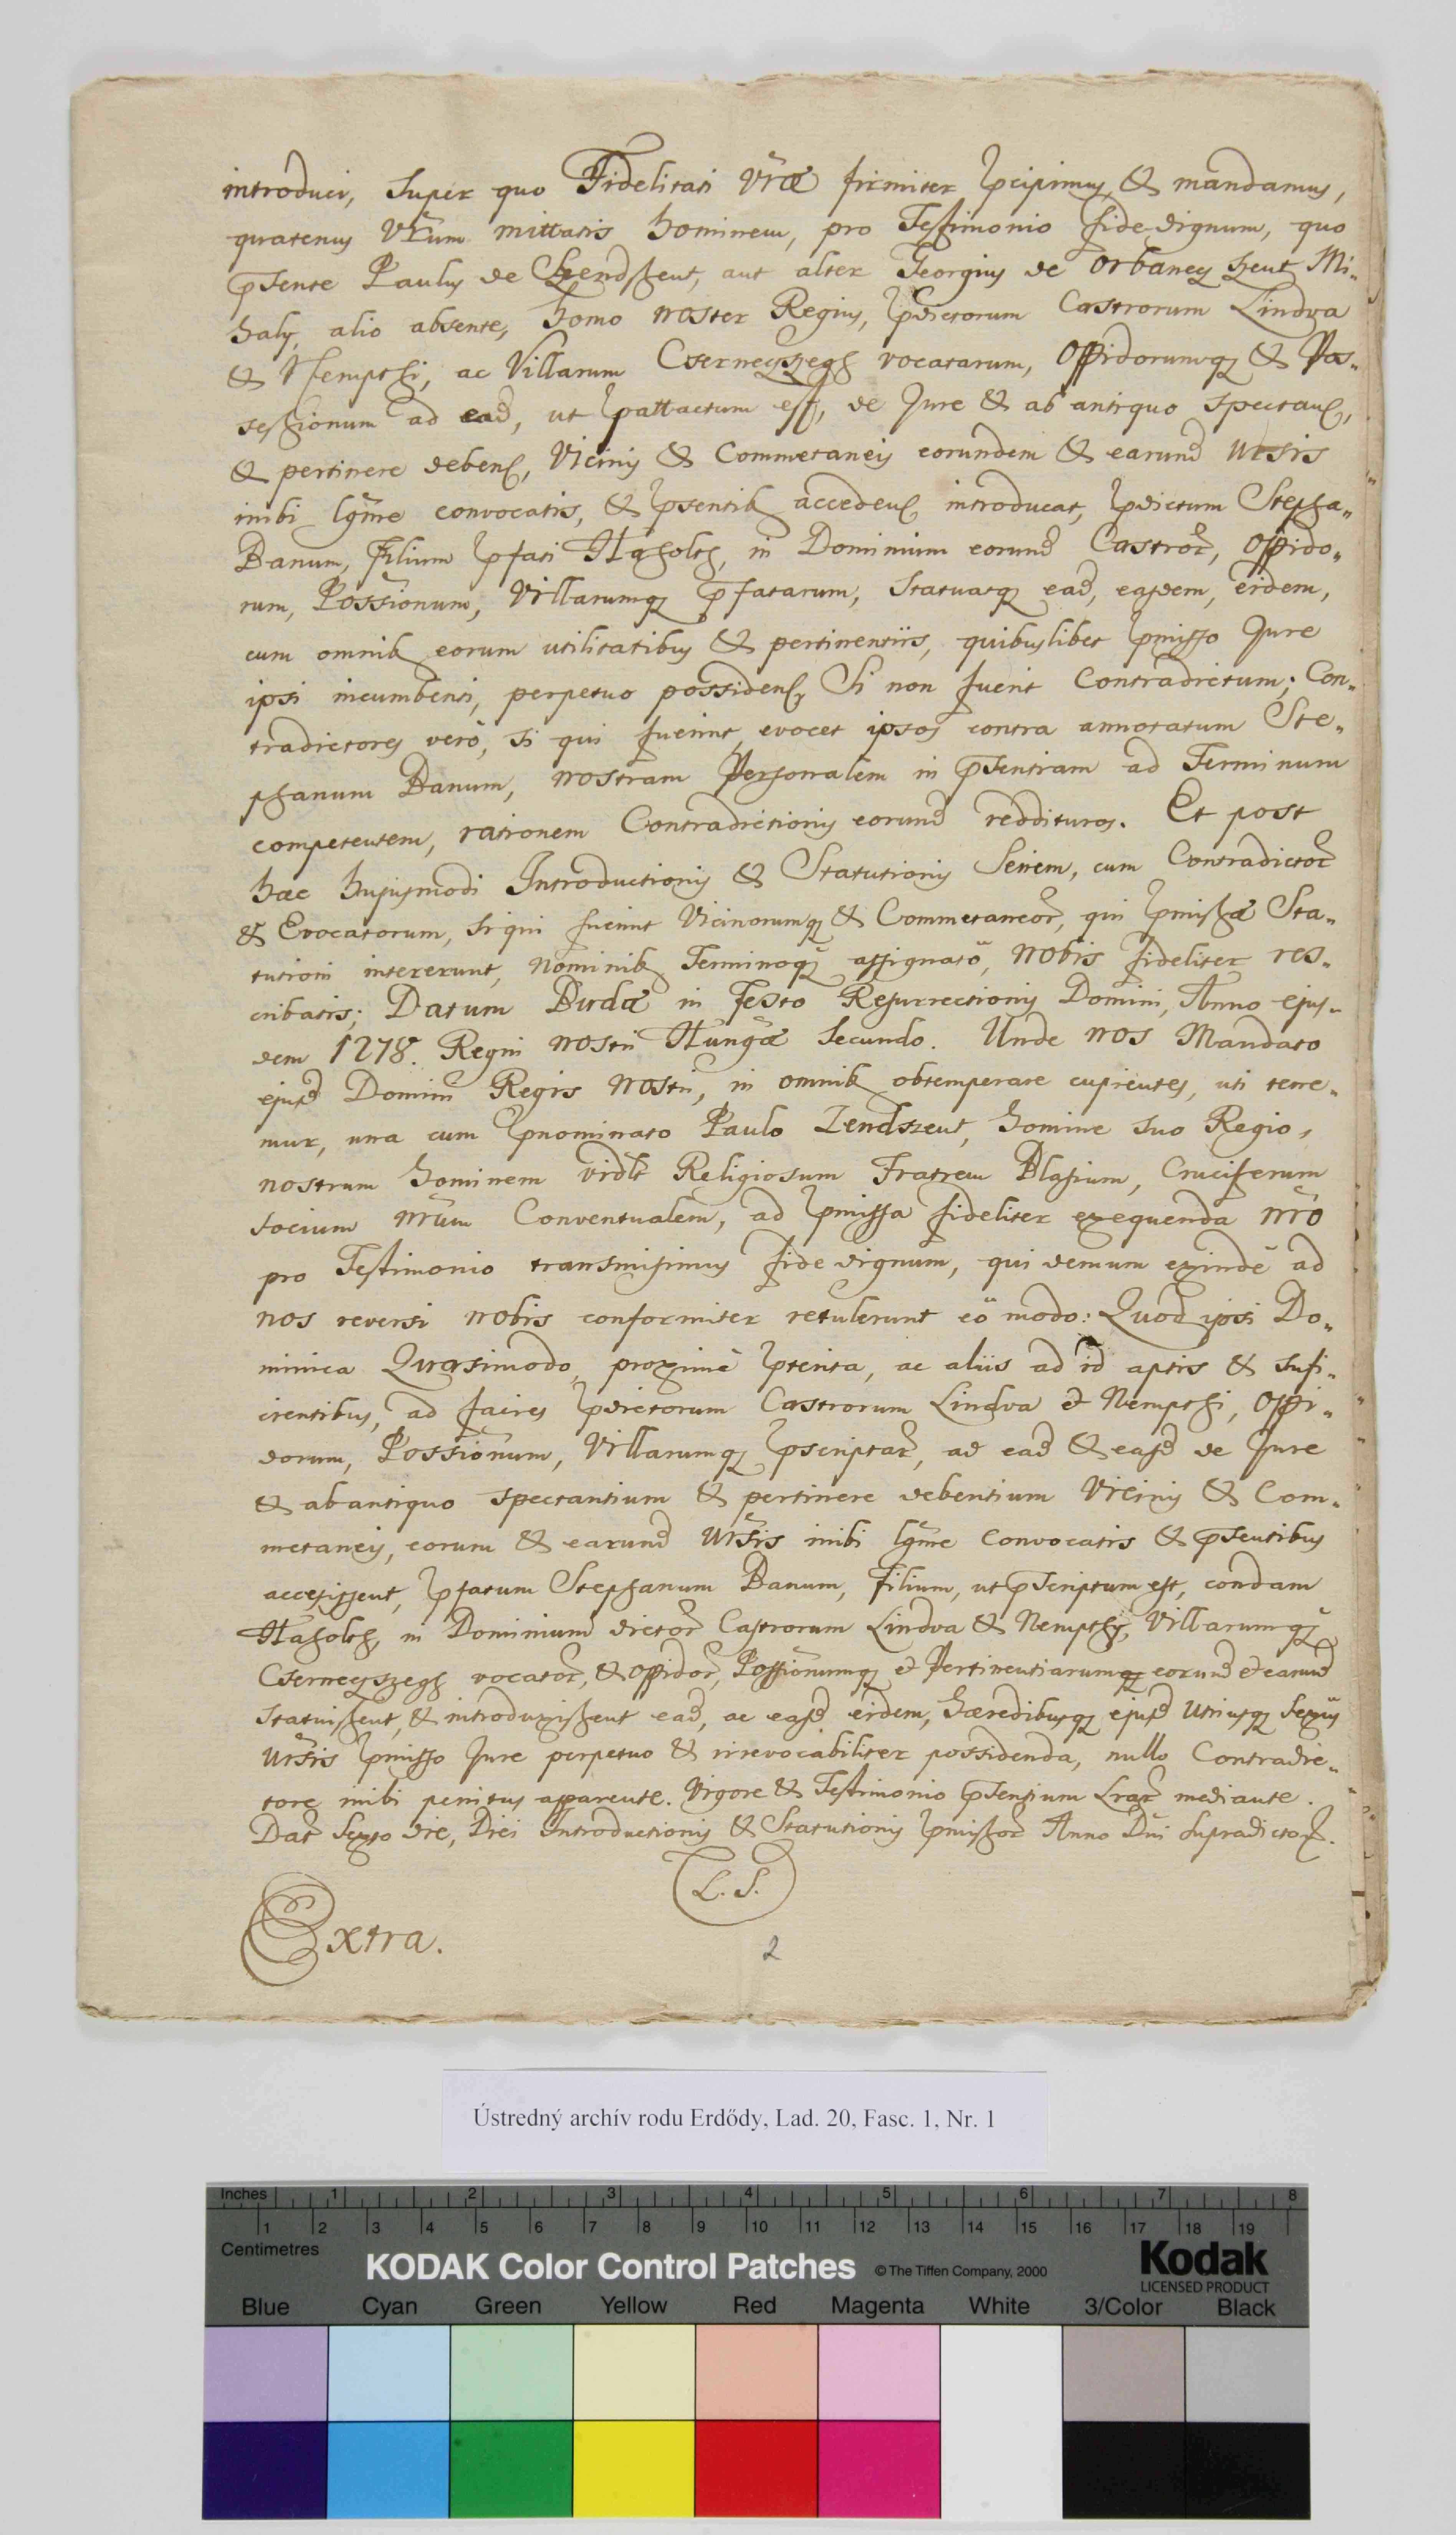 introduci, super quo Fidelitati Vrae firmiter pcipimus, & mandamus,
quatenus Vrum mittatis hominem, pro Testimonio fide dignum, quo
psente Paulus de Szendszent, aut alter Georgius de Orbaney Szent Mi-
haly, alio absente, homo noster Regius, pdictorum Castrorum Lindva
& Nempthi, ac Villarum Csernegszegh vocatarum, Oppidorumq & Pos-
sessionum ad ead, ut pattactum est, de Jure & ab antiquo spectan,
& pertinere deben, Vicinis & Commetaneis eorundem & earund Ursis
inibi lgme convocatis, & psentib acceden introducat, pdictum Stepha-
Banum, Filium pfati Haholth, in Dominium eorund Castror, Oppido-
rum, Possionum, Villarumq pfatarum, statuatq ead, easdem, eidem,
cum omnib eorum utilitatibus & pertinentiis, quibuslibet pmisso Jure
ipsi incumbenti, perpetuo possiden, Si non fuerit Contradictum; Con-
tradictores verò, si qui fuerint, evocet ipsos contra annotatum Ste-
phanum Banum, nostram Personalem in psentiam ad Terminum
competentem, rationem Contradictionis eorund reddituros. Et post
haec hujusmodi Introductionis & Statutionis Seriem, cum Contradictor
& Evocatorum, si qui fuerint Vicinorumq & Commetaneor, qui pmissae Sta-
tutioni intererunt, nominib Terminoq assignato, nobis fideliter res-
cribatis; Datum Budae in Festo Resurrectionis Domini, Anno ejus-
dem 1278. Regni nostri Hungae Secundo. Unde nos Mandato
ejusd Domini Regis nostri, in omnib obtemperare cupientes, uti tene-
mur, una cum pnominato Paulo Zendszent, homine suo Regio,
nostrum hominem vidlt Religiosum Fratrem Blasium, Cruciferum
socium nrum Conventualem, ad pmissa fideliter exequenda nro
pro Testimonio transmisimus fide dignum, qui demum exindè ad
nos reversi nobis conformiter retulerunt eo modo: Quod ipsi Do-
minica Quasimodo, proximè pterita, ac aliis ad id aptis & sufi-
cientibus, ad facies pdictorum Castrorum Lindva & Nempthi, Oppi-
dorum, Possionum, Villarumq pscriptar, ad ead & easd de Jure
& ab antiquo spectantium & pertinere debentium Vicinis & Com-
metaneis, eorum & earund Ursis inibi lgme convocatis & psentibus
accessissent, pfatum Stephanum Banum, Filium, ut pscriptum est, condam
Haholth, in Dominium dictor Castrorum Lindva & Nempthy, Villarumq
Csernegszegh vocator, & oppidor, Possionumq & Pertinentiarumq eorund & earund
statuissent, & introduxissent ead, ac easd eidem, haeredibusq ejusd Utriusq Sexus
Ursis pmisso Jure perpetuo & irrevocabiliter possidenda, nullo Contradic-
tore inibi penitus apparente. Vigore & Testimonio psentium Lrar mediante.
Dat Sexto die, Diei Introductionis & Statutionis pmissor Anno Dni supradicto.
L. S.
Extra.
2
Ústredný archív rodu Erdődy, Lad. 20, Fasc. 1, Nr. 1
Inches 1 2 3 4 5 6 7 8
1 2 3 4 5 6 7 8 9 10 11 12 13 14 15 16 17 18 19
Centimetres
KODAK Color Control Patches © The Tiffen Company, 2000 Kodak
LICENSED PRODUCT
Blue Cyan Green Yellow Red Magenta White 3/Color Black